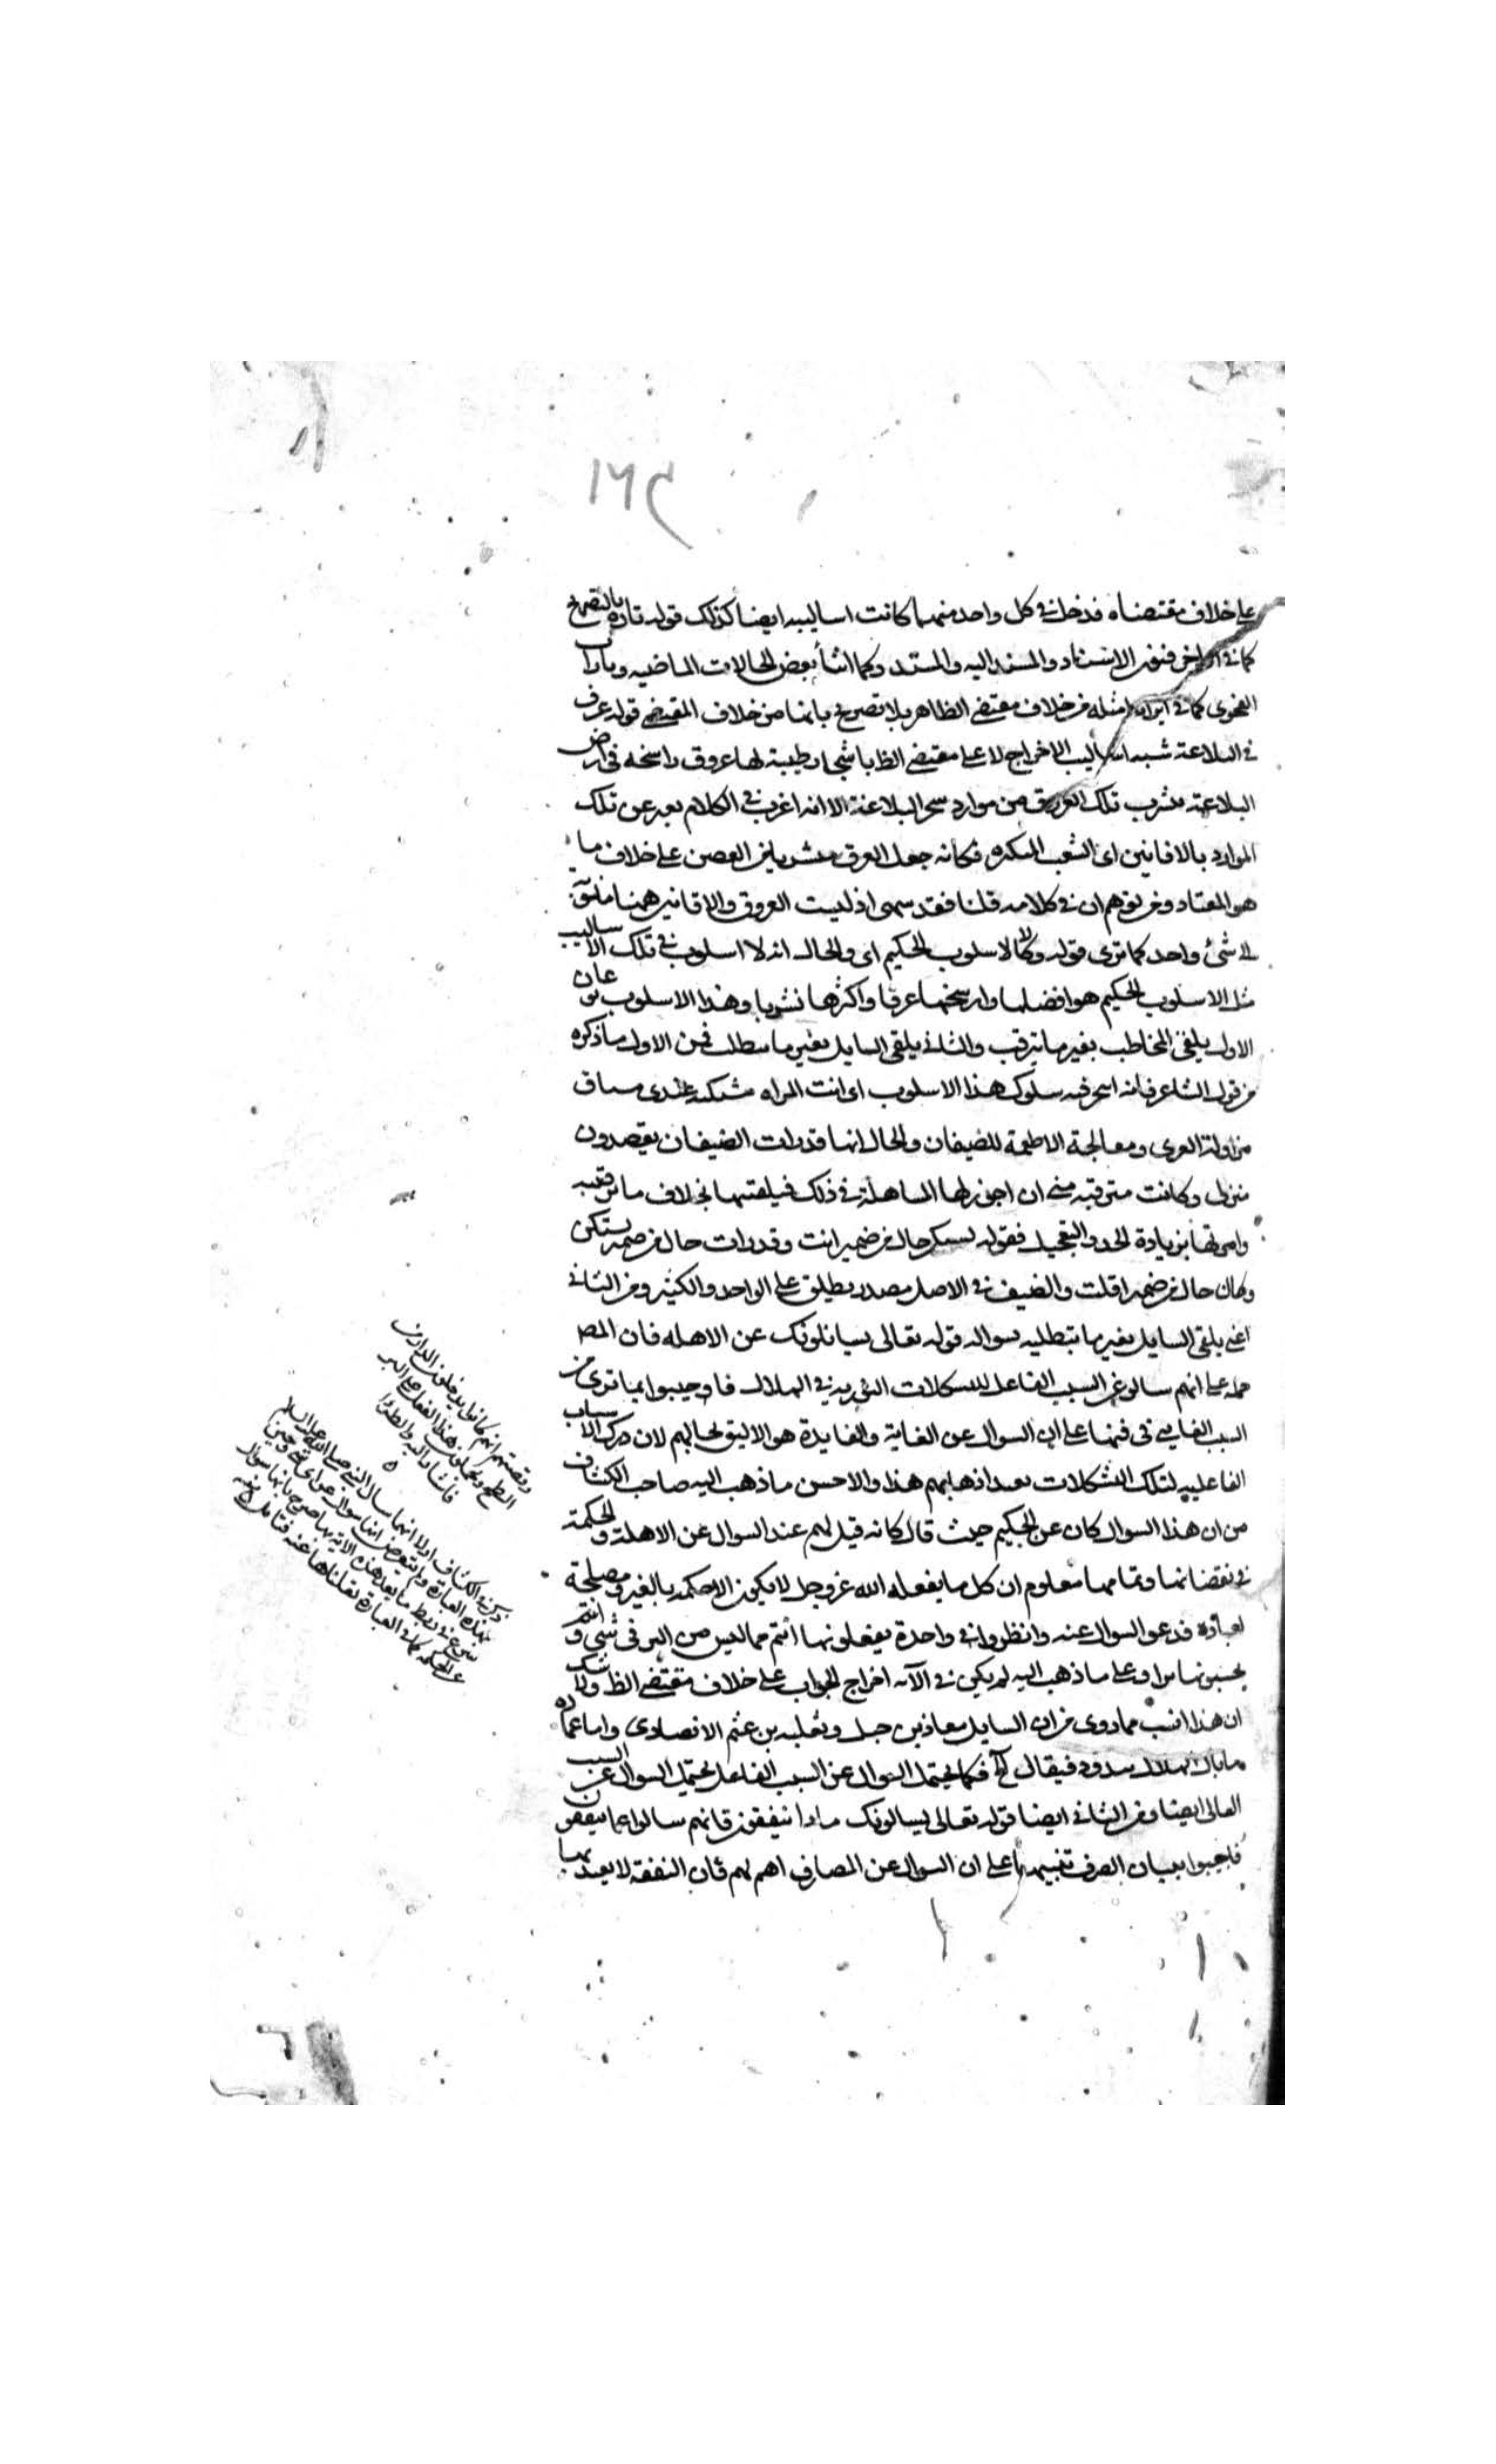 ١٦٤
على خلاف مقتضاه فدخل في كل واحد منهما كانت اساليبه ايضا كذلك قوله تارة بالتصريح
كما في فنون الاسناد والمسند اليه والمسند وكما اثنأ بعض الحالات الماضيه وتارة
الفحوى كما في ايراد امثله من خلاف مقتضى الظاهر بلا تصريح بانها من خلاف المقتضى قوله عرف
في البلاغة شبه اساليب الاخراج لا على مقتضى الظ باشجار طيبة لها عروق راسخه في ارض
البلاغة تشرب تلك العروق من موارد سحر البلاغة الا انه اغرب في الكلام بعبر عن تلك
الموارد بالافانين اى الشعب المكره فكانه جعل العرق متشربا من الغصن على خلاف ما
هو المعتاد ومن توهم ان في كلامه قلبا فقد سهى اذ ليست العروق والافانين ههنا
لا شئ واحد كما ترى قوله ولا كالاسلوب الحكيم اى والحال انه لا اسلوب في تلك الاساليب
مثل الاسلوب الحكيم هو افضلها وارسخها عرقا واكثرها تشربا وهذا الاسلوب نوعان
الاول يلقى المخاطب بغير ما يترقب والثاني يلقى السايل بغير ما يتطلب فمن الاول ما ذكره
من قول الشاعر فانه سلوك هذا الاسلوب اى اتت المراه مشتكية عندى
مزاولة القرى ومعالجة الاطعمة للضيفان والحال انها قد رات الضيفان يقصدون
منزلى وكانت مترقبه منى ان اجوز لها المساهلة في ذلك فيلقتها بخلاف ما ترقبه
وامرتها بزيادة الجد والتعجيل فقوله تشتكى حال من ضمير اتت وقد رات حال من ضمير تشتكى
وكان حال من ضمير اقلت والضيف في الاصل مصدر يطلق على الواحد والكثير ومن الثاني
اعنى يلقى السايل بغير ما يتطلبه بسواله قوله تعالى يسئلونك عن الاهله فان المص
حمله على انهم سالوا عن السبب الفاعل للتشكلات النوريه في الهلال فاجيبوا بما ترى من
السبب الغايى تنبيها على ان السوال عن الغاية والفايدة هو الاليق بحالهم لان درك الاسباب
الفاعليه لتلك التشكلات بعد اذهابهم هذا والاحسن ما ذهب اليه صاحب الكشاف
من ان هذا السوال كان عن الحكيم حيث قال كانه قيل لهم عند السوال عن الاهلة والحكمة
في نقصانها وتمامها معلوم ان كل ما يفعله الله عز وجل لا يكون الا حكمة بالغة ومصلحة
لعباده فدعوا السوال عنه وانظروا في واحدة يفعلونها انتم مما ليس من البر في شئ وانتم
تحسبونها برا وعلى ما ذهب اليه لم يكن في الآيه اخراج الجواب على خلاف مقتضى الظ ولا شك
ان هذا انسب مما روى من ان السايل معاذ بن جبل وثعلبه بن غنم الانصارى واما عبارة
ما بال الهلال يبدو دقيقا الخ فكما يحتمل السوال عن السبب الفاعل يحتمل السوال عن السبب
الغائى ايضا ومن الثاني ايضا قوله تعالى يسالونك ماذا ينفقون فانهم سالوا عما ينفقون
فاجيبوا ببيان المصرف تنبيها على ان السوال عن المصارف اهم لهم فان النفقة لا يعتد بها
وقصتهم انهم كانوا يدخلون الدار من
السطح ويجعلون هذا الفعل من البر
فاشار اليه والظهر
ذكر في الكشاف اولا انهما سالا النبي صلى الله عليه السلام
بهذه العبارة ولم يتعرض انها سوال عن اى شئ وحين
شرع في ربط ما بعد هذه الاية بها صرح بانها سوال
عن الحكمة كما في العبارة نقلناها عنه فتأمل منه